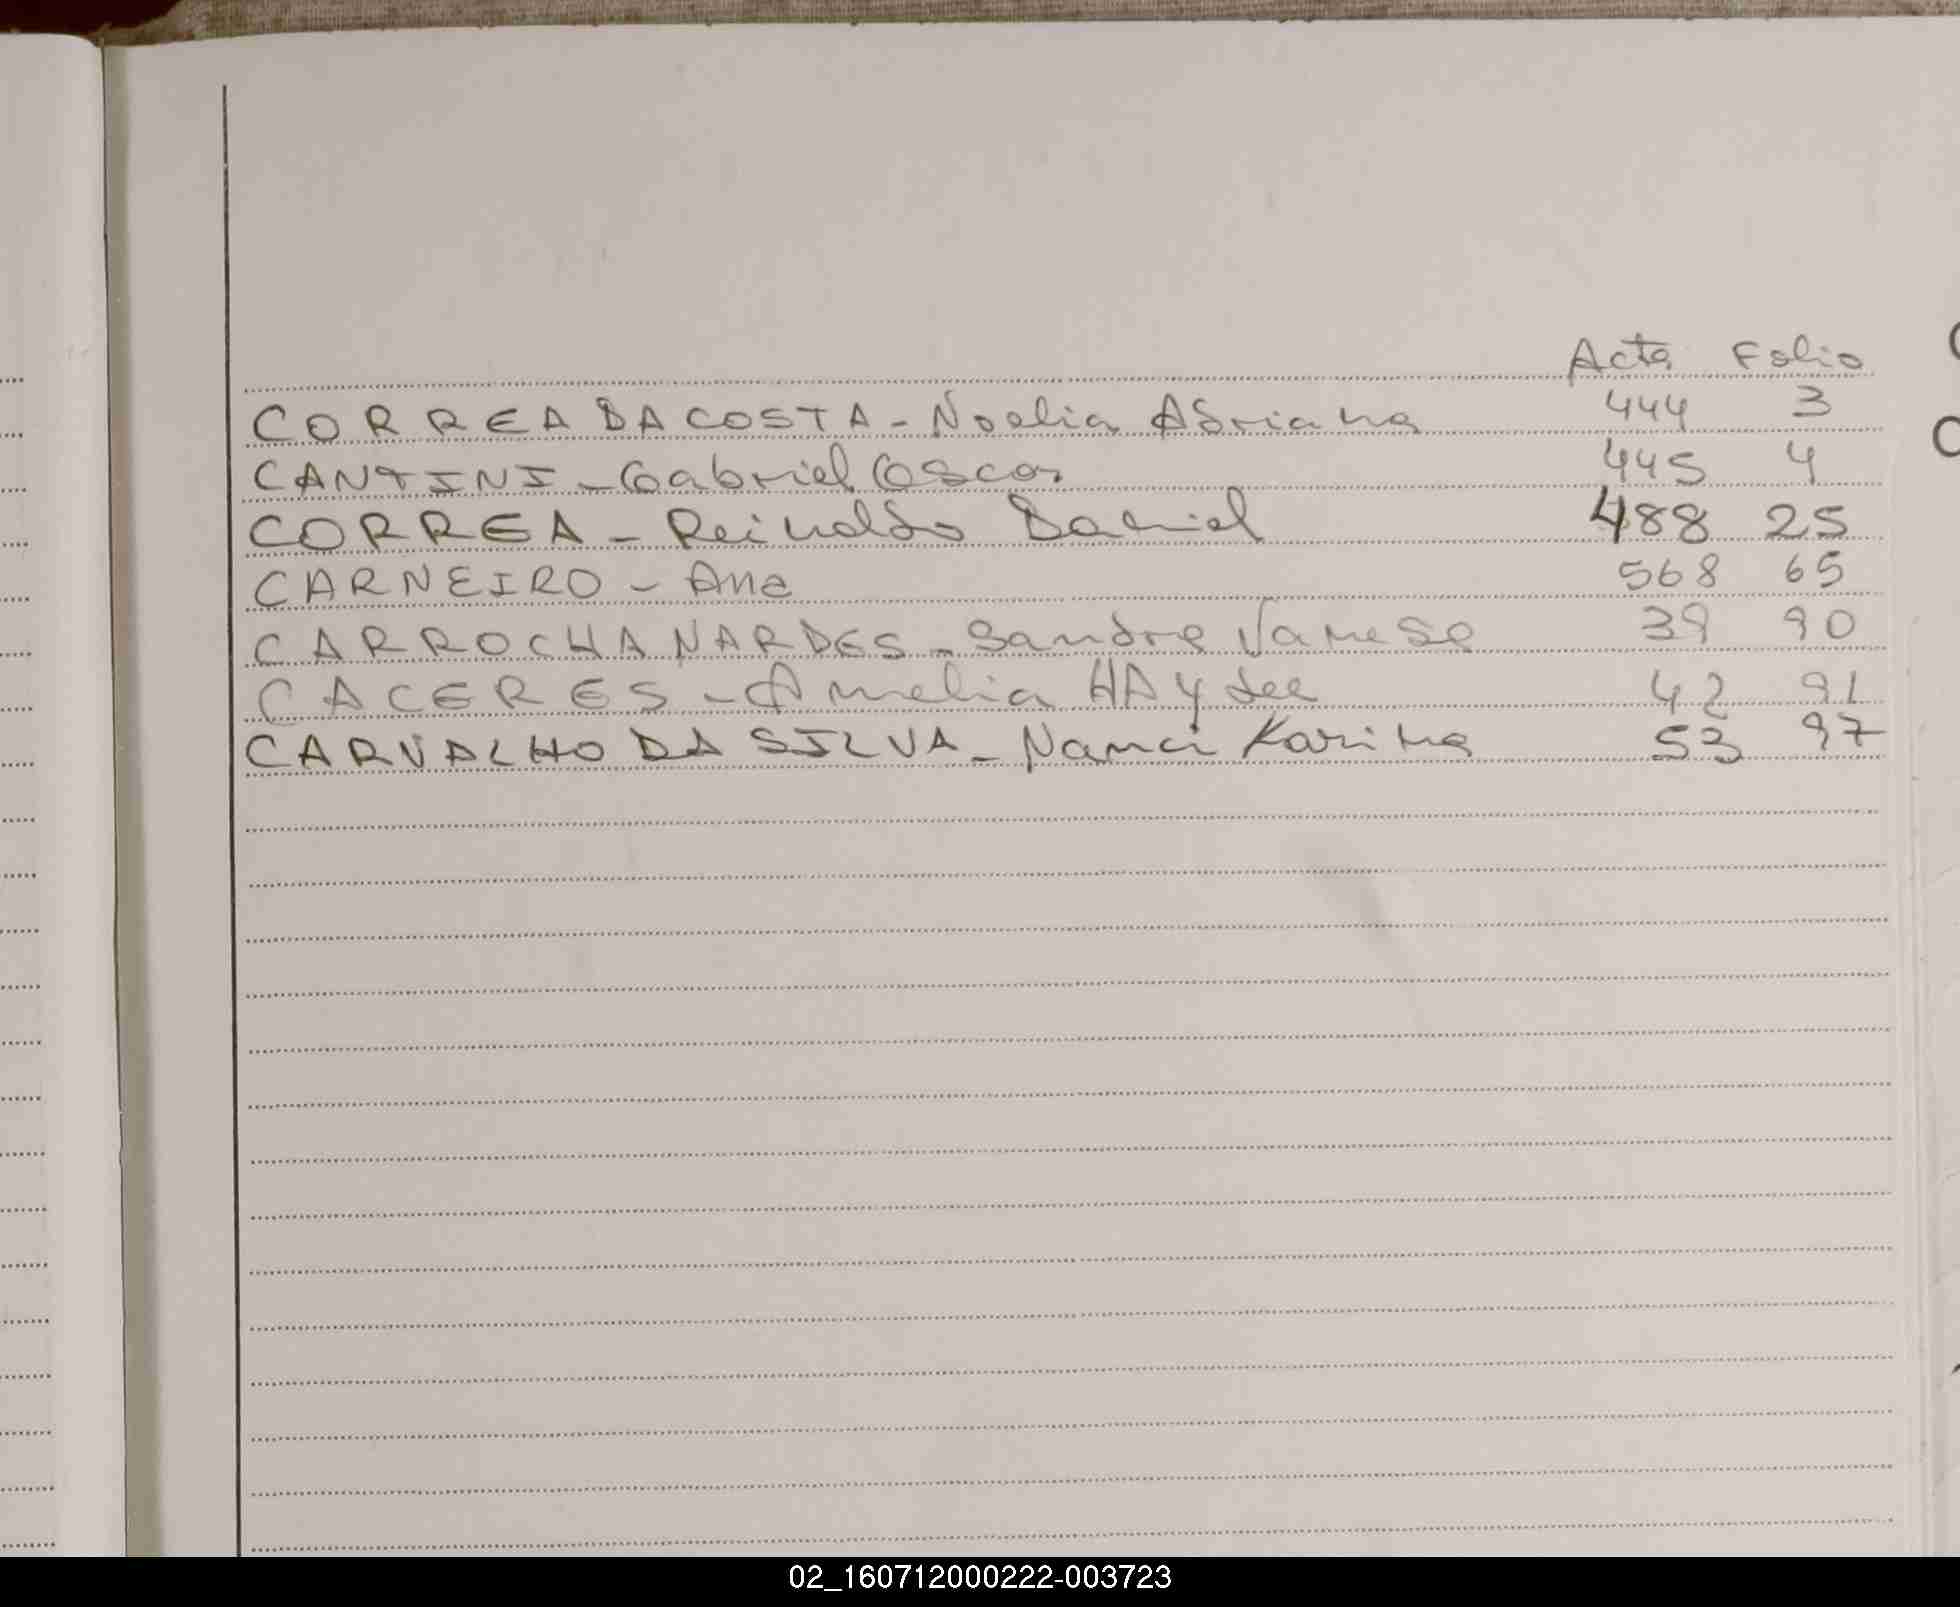 Acta Folio
CORREA DA COSTA - Noelia Adriana 444 3
CANTINI - Gabriel Oscar 445 4
CORREA - Reinaldo Daniel 488 25
CARNEIRO - Ana 568 65
CARROCHA NARDES - Sandra Vanesa 39 90
CACERES - Amelia HAydee 42 91
CARVALHO DA SILVA - Nanci Karina 53 97
02_160712000222-003723